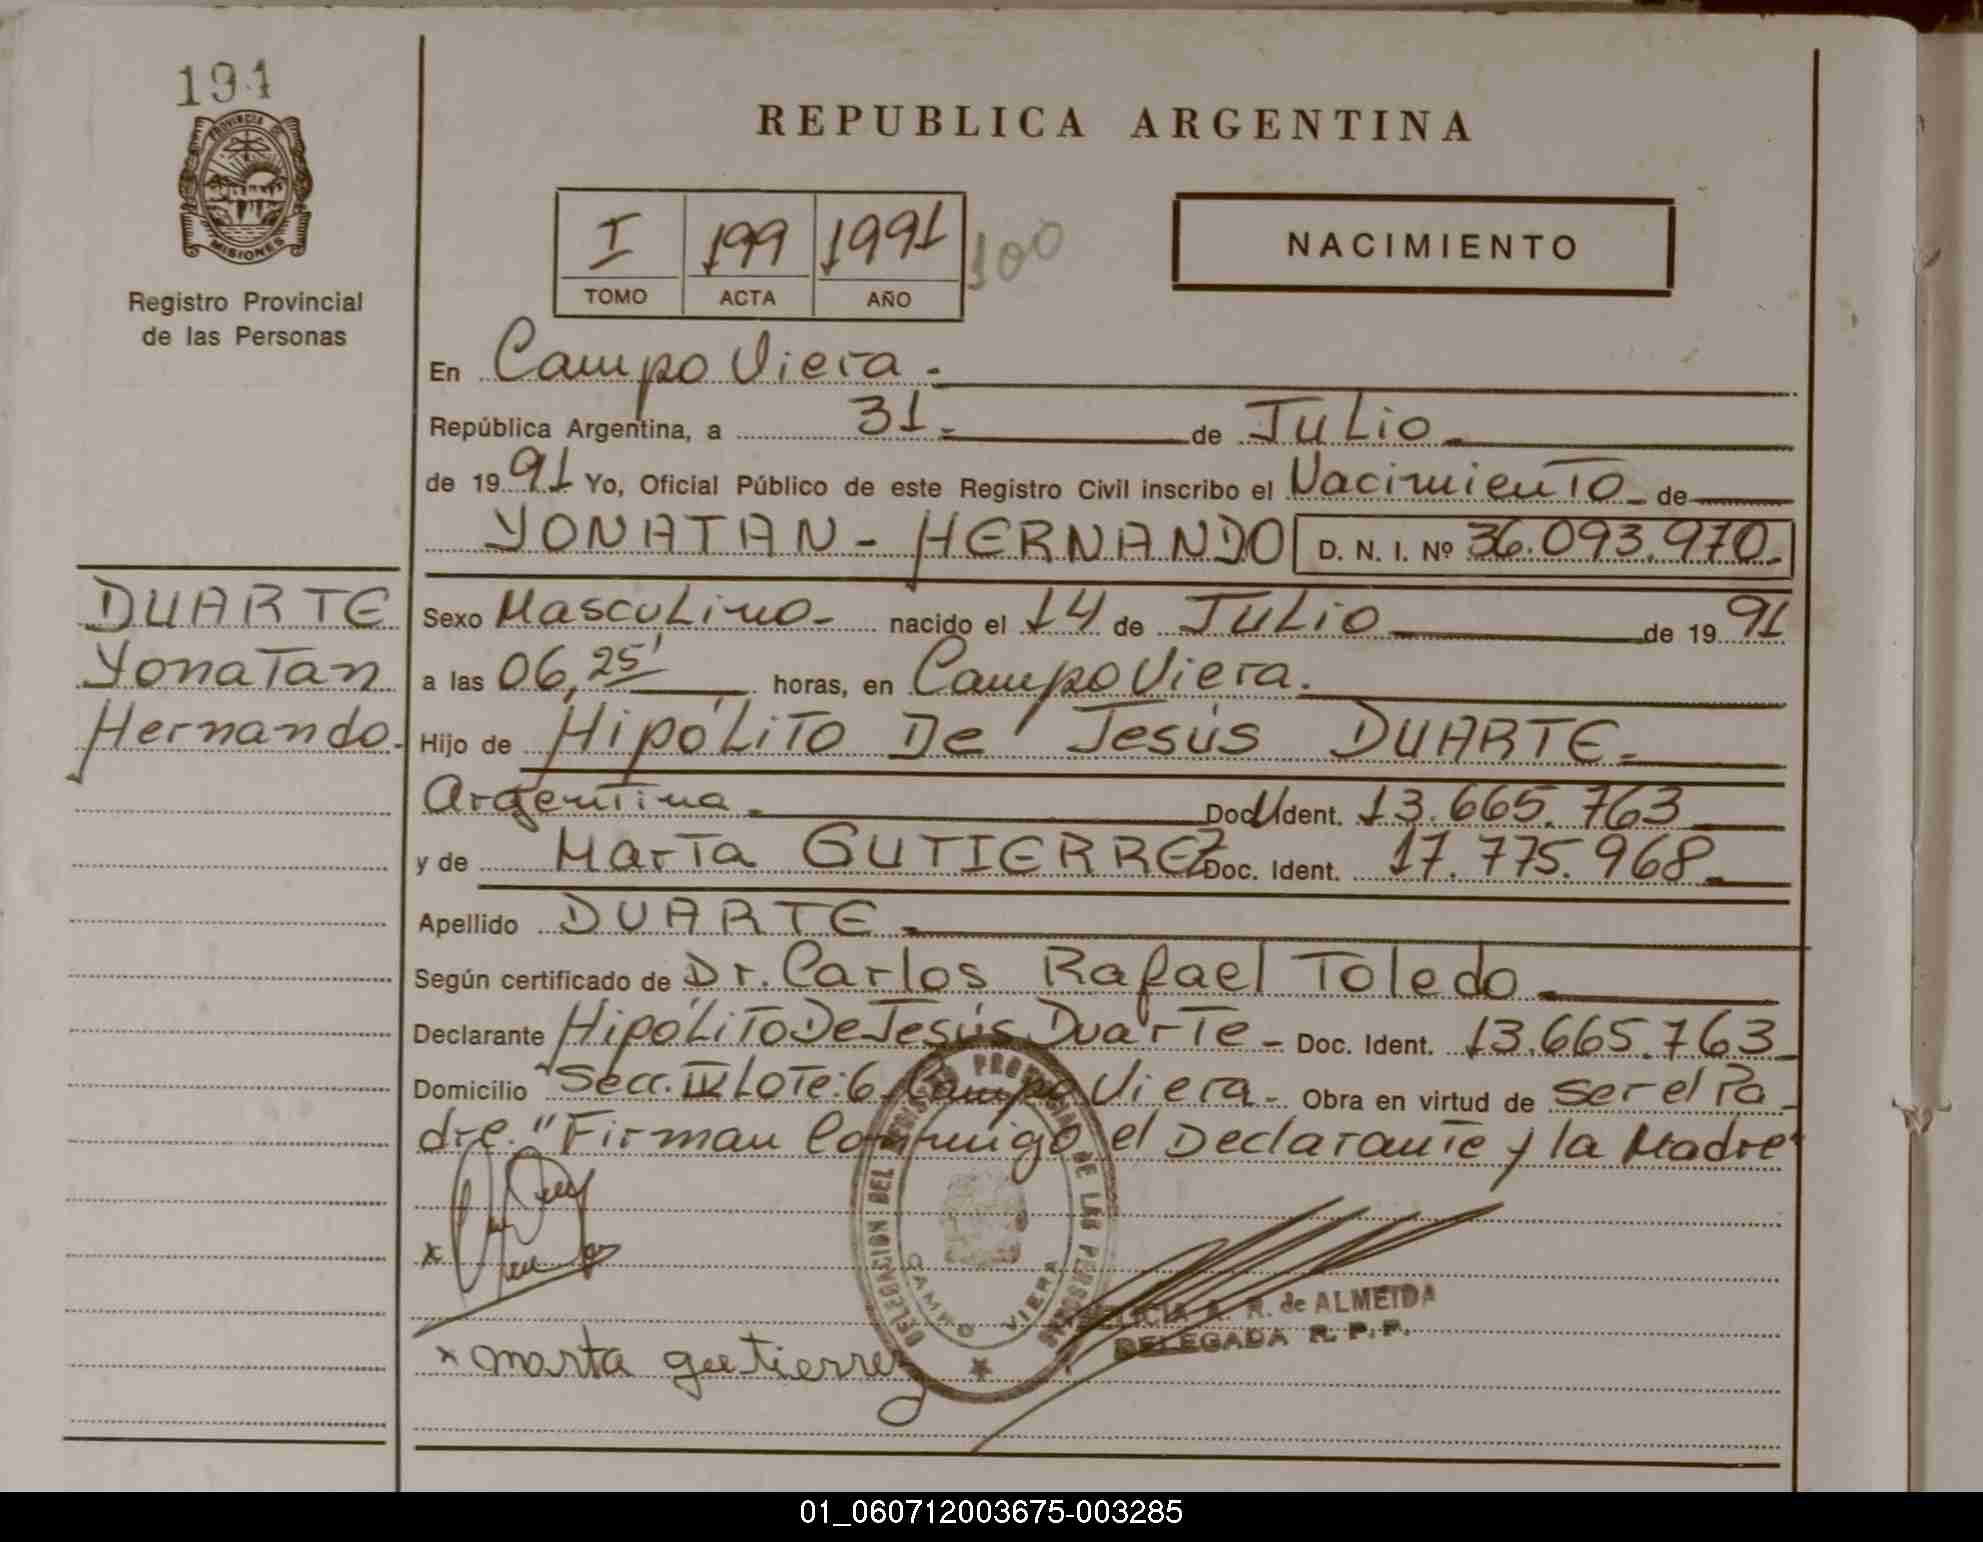 191
PROVINCIA DE
MISIONES
Registro Provincial
de las Personas
REPUBLICA ARGENTINA
I 199 1991 100
TOMO ACTA AÑO
NACIMIENTO
En Campo Viera.
República Argentina, a 31 de Julio
de 1991 Yo, Oficial Público de este Registro Civil inscribo el Nacimiento de
YONATAN - HERNANDO D. N. I. Nº 36.093.970
DUARTE
Yonatan
Hernando.
Sexo Masculino nacido el 14 de Julio de 1991
a las 06,25' horas, en Campo Viera.
Hijo de Hipólito De Jesús DUARTE
Argentina Doc. Ident. 13.665.763
y de Marta GUTIERREZ Doc. Ident. 17.775.968
Apellido DUARTE
Según certificado de Dr. Carlos Rafael Toledo
Declarante Hipólito De Jesús Duarte - Doc. Ident. 13.665.763
Domicilio Secc. IV Lote: 6 Campo Viera - Obra en virtud de ser el Pa-
dre. "Firman Conmigo el Declarante y la Madre"
DELEGACION DEL REGISTRO PROVINCIAL DE LAS PERSONAS
CAMPO VIERA
x
A. R. de ALMEIDA
DELEGADA R. P. P.
x marta gutierrez
01_060712003675-003285